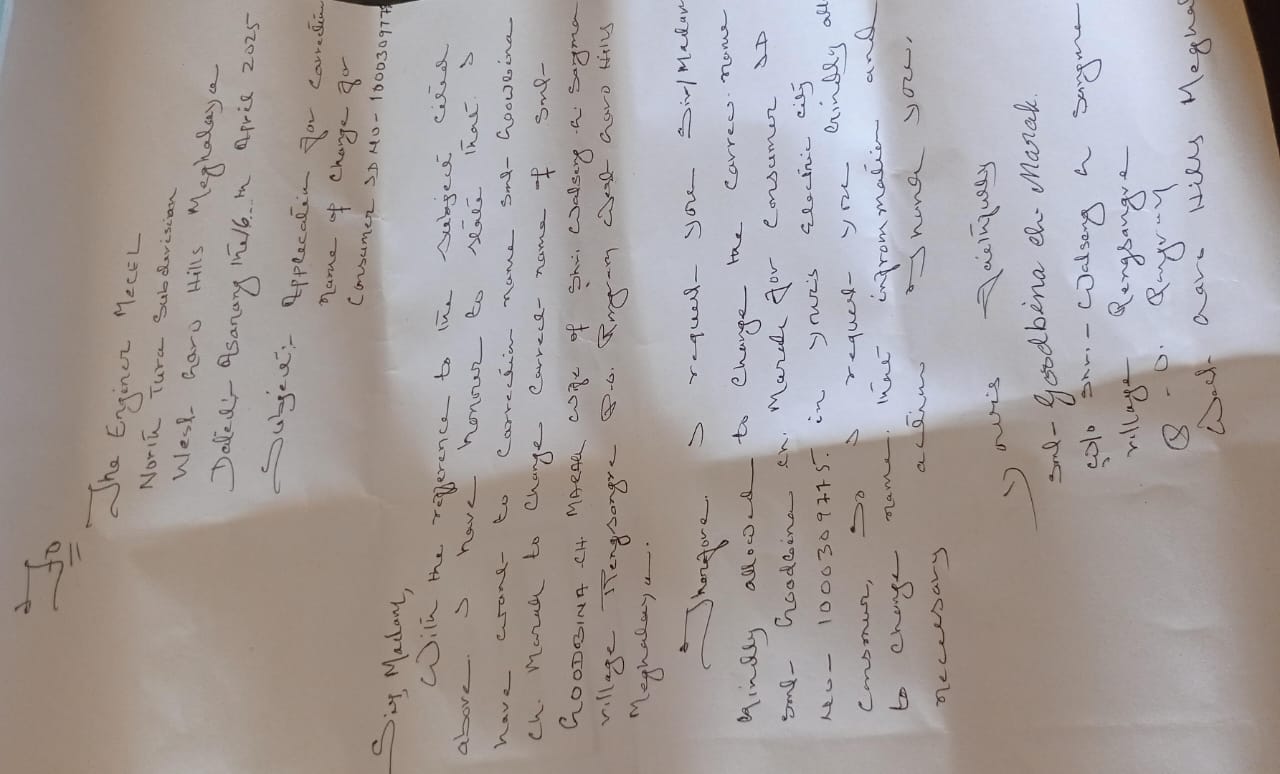 To
The Enginer MeCEL
North Tura Subdivision
West Garo Hills Meghalaya
Dated:- Asanang the/6..th April 2025
Subject:- Applecation for Correction
name of Change for
Consumer SD NO- 100030977
Sir, Madam,
With the refference to the subject cited
above. I have honor to state that. I
have want to Correction name Smt- Goodbina
Ch. Marak to Change Correct name of Smt-
GOODBINA CH MARAK wife of Shri. Walseng R Sagma
village Rengsangre P.O. Rongram West Garo Hills
Meghalaya.
Therefore. I request you Sir/Madam
kindly allowed to Change the Correct name
Smt- Goodbina Ch. Marak for Consumer SD
No- 1000309775. in yours Electric city
Consumer, So I request you kindly all
to Change name. that information and
neccesary action Thank you,
Yours Faithfully
Smt- Goodbina ch. Marak.
W/o Shri- Walseng R Sangma
village Rengsangre
West Garo Hills Megha